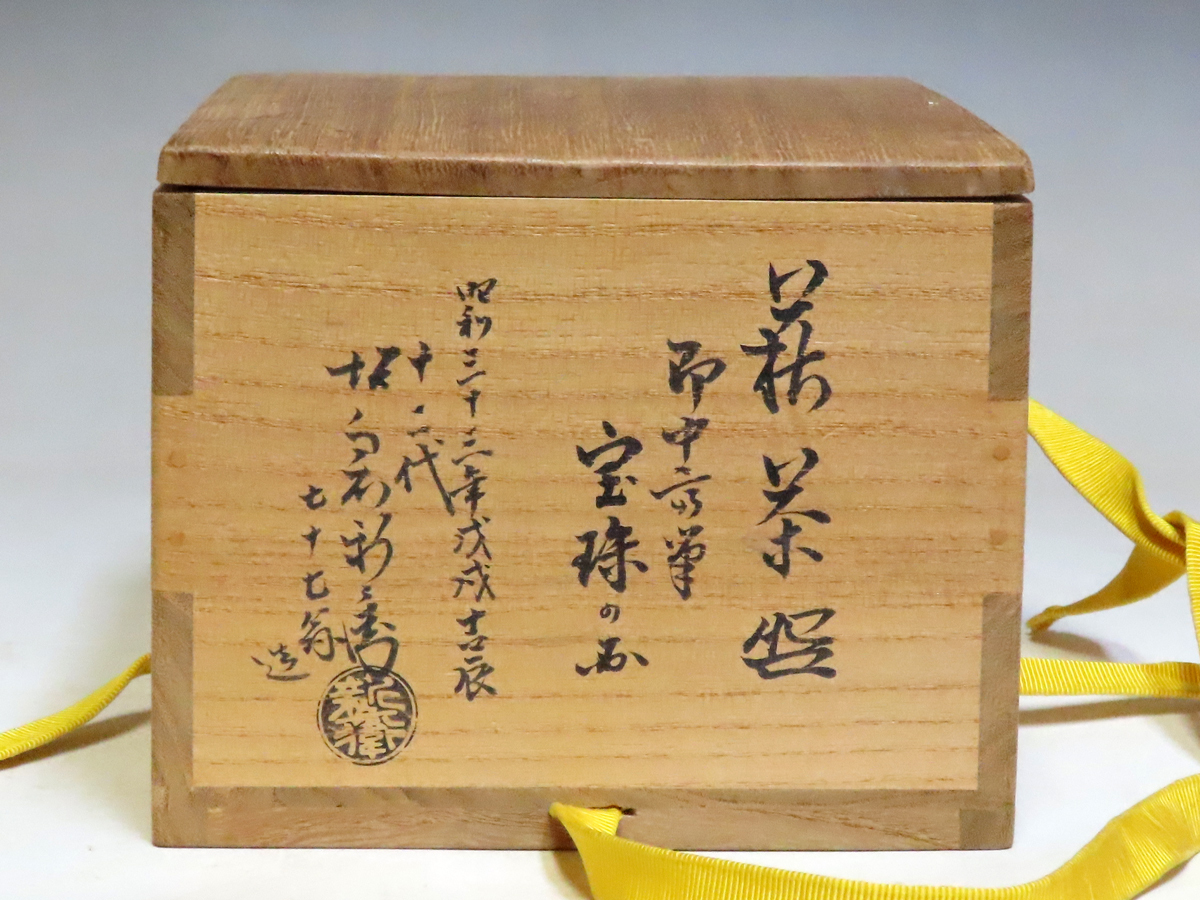 萩茶盌
即中斎筆
宝珠の画
昭和三十三年戊戌吉辰
十二代
坂倉新兵衛
七十七翁
造
新兵衛